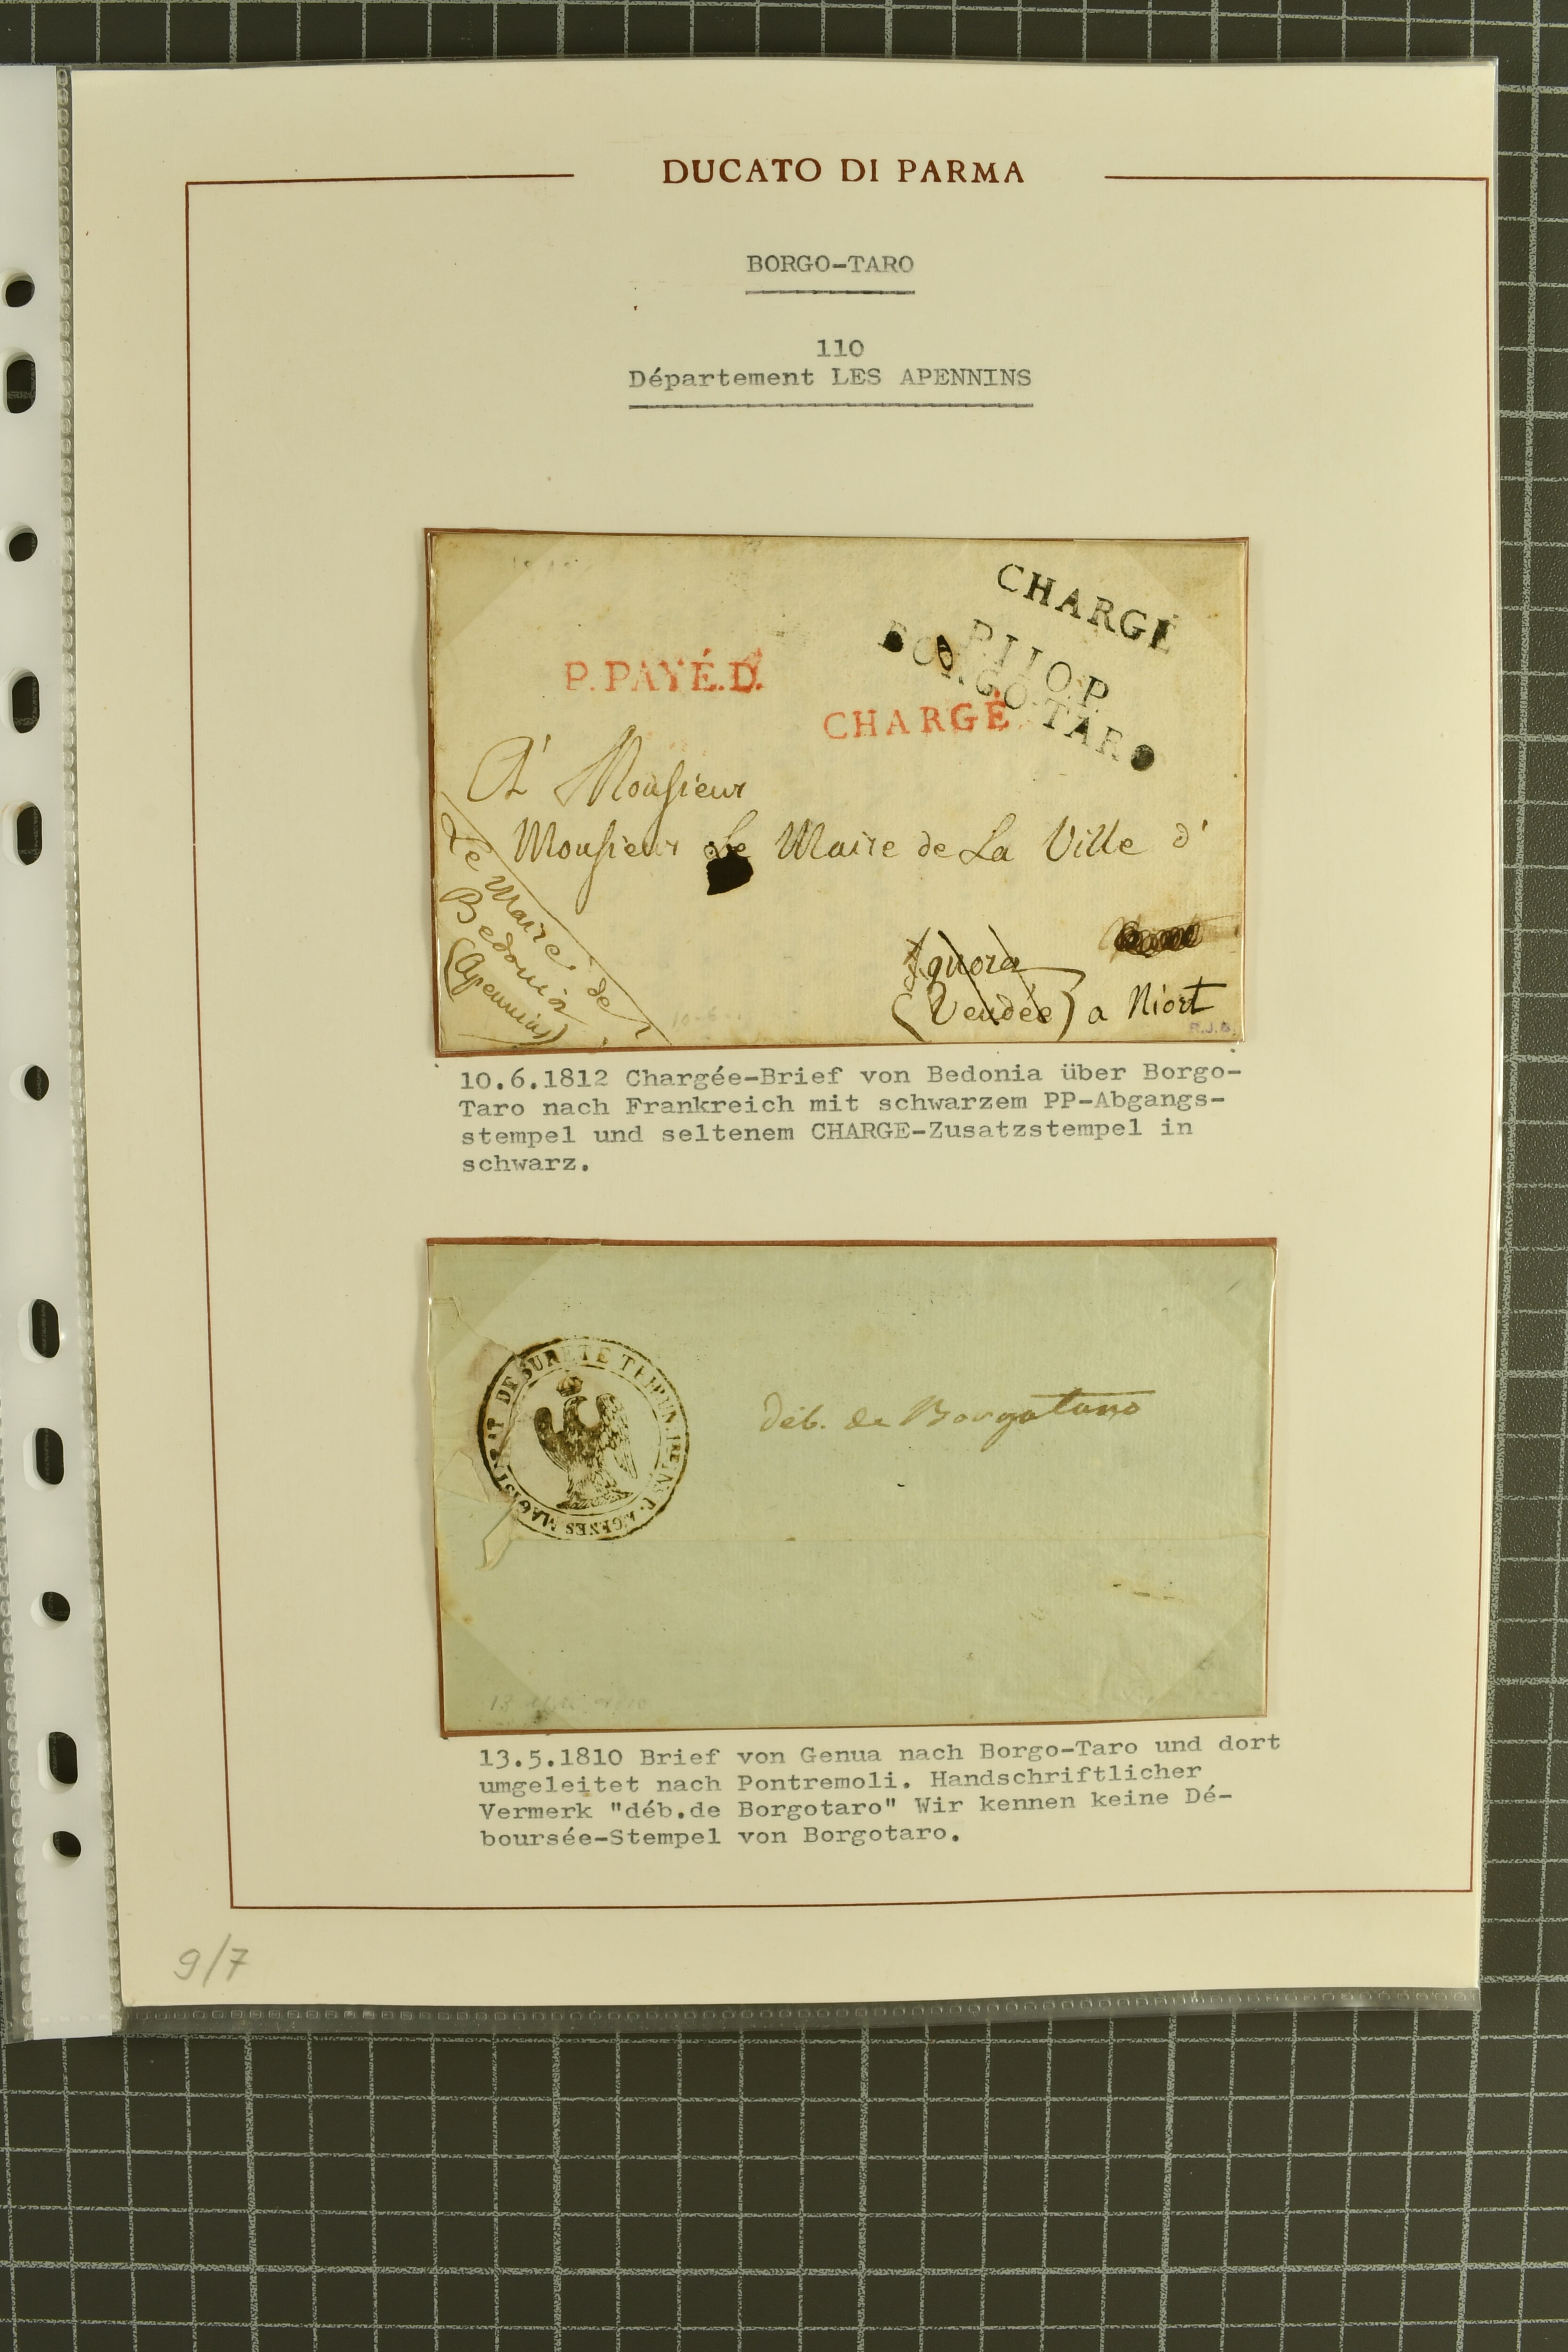 DUCATO DI PARMA
BORGO-TARO
110
Département LES APENNINS
CHARGÉ
P.110.P.
BORGO-TARO
P.PAYÉ.D.
CHARGÉ
A Monsieur
Monsieur Le Maire de La Ville d'
Le Maire de
Bedonia
(Apennins)
(Vendée) a Niort
R.J.B.
10.6.1812 Chargée-Brief von Bedonia über Borgo-
Taro nach Frankreich mit schwarzem PP-Abgangs-
stempel und seltenem CHARGE-Zusatzstempel in
schwarz.
MAGISTRAT DE SURETÉ
déb. de Borgotaro
13.5.1810 Brief von Genua nach Borgo-Taro und dort
umgeleitet nach Pontremoli. Handschriftlicher
Vermerk "déb.de Borgotaro" Wir kennen keine Dé-
boursée-Stempel von Borgotaro.
9/7